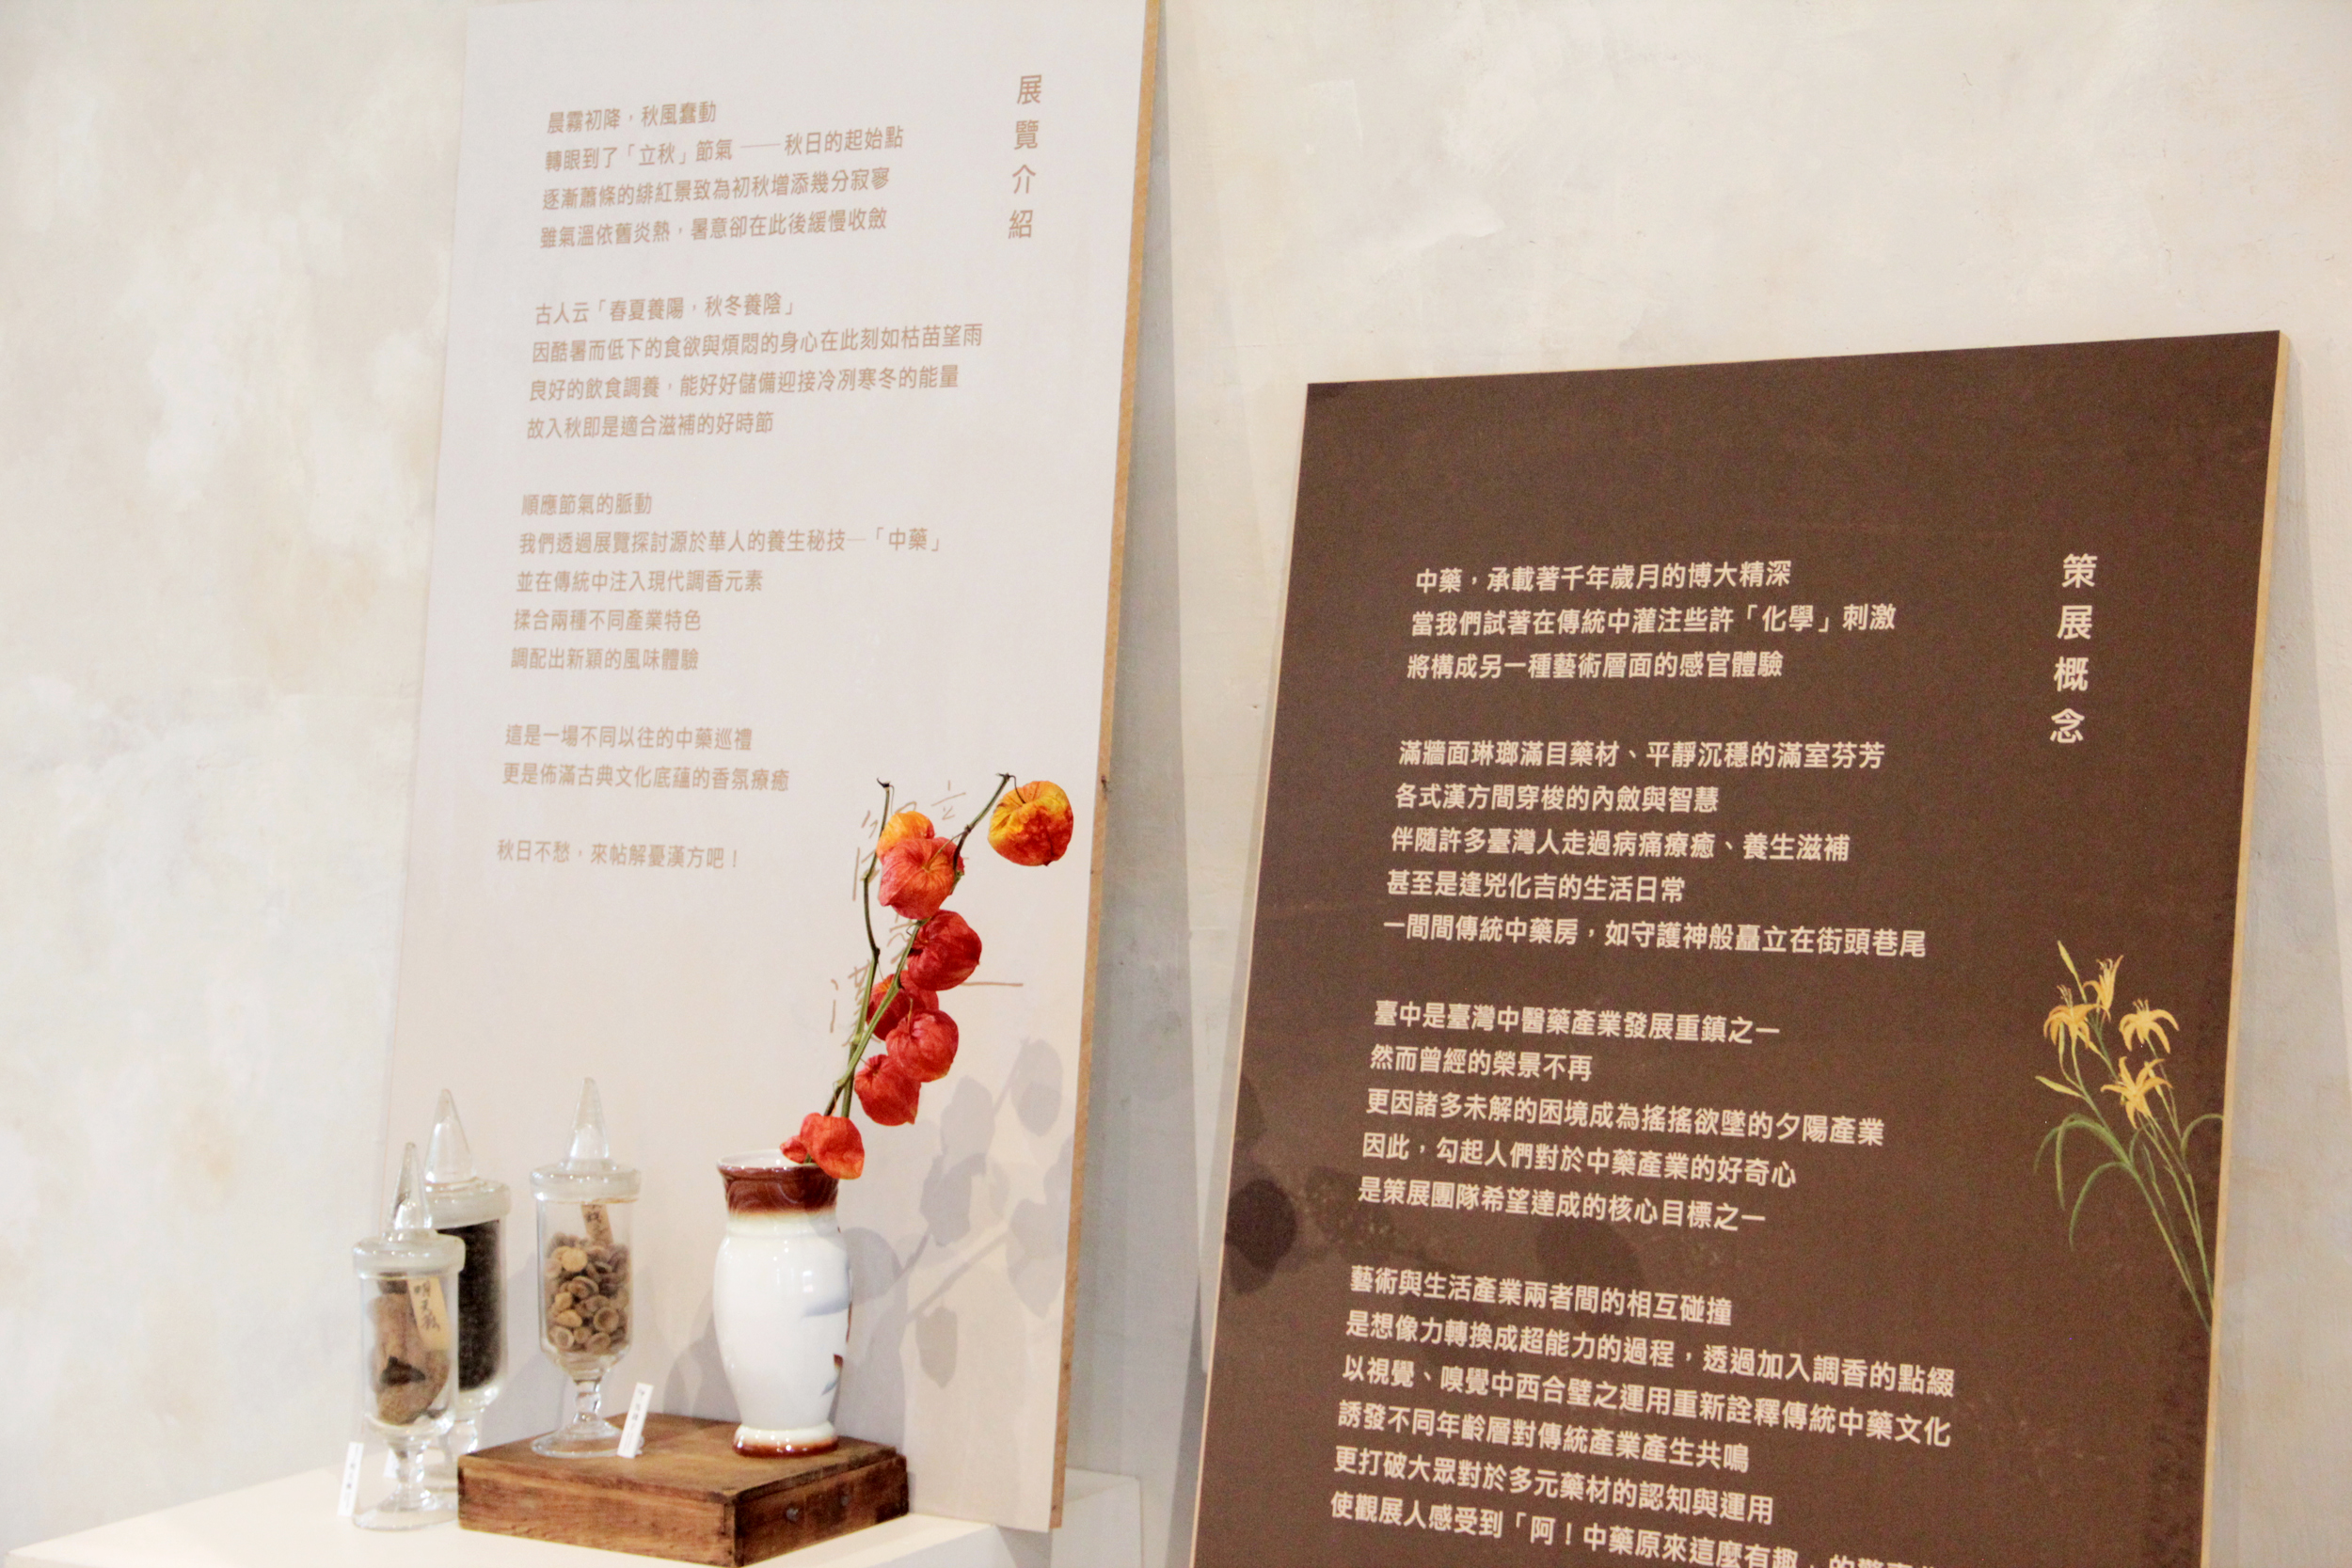 展覽介紹
晨霧初降，秋風蠢動
轉眼到了「立秋」節氣——秋日的起始點
逐漸蕭條的緋紅景致為初秋增添幾分寂寥
雖氣溫依舊炎熱，暑意卻在此後緩慢收斂
古人云「春夏養陽，秋冬養陰」
因酷暑而低下的食欲與煩悶的身心在此刻如枯苗望雨
良好的飲食調養，能好好儲備迎接冷冽寒冬的能量
故入秋即是適合滋補的好時節
順應節氣的脈動
我們透過展覽探討源於華人的養生秘技—「中藥」
並在傳統中注入現代調香元素
揉合兩種不同產業特色
調配出新穎的風味體驗
這是一場不同以往的中藥巡禮
更是佈滿古典文化底蘊的香氛療癒
秋日不愁，來帖解憂漢方吧！
策展概念
中藥，承載著千年歲月的博大精深
當我們試著在傳統中灌注些許「化學」刺激
將構成另一種藝術層面的感官體驗
滿牆面琳瑯滿目藥材、平靜沉穩的滿室芬芳
各式漢方間穿梭的內斂與智慧
伴隨許多臺灣人走過病痛療癒、養生滋補
甚至是逢兇化吉的生活日常
一間間傳統中藥房，如守護神般矗立在街頭巷尾
臺中是臺灣中醫藥產業發展重鎮之一
然而曾經的榮景不再
更因諸多未解的困境成為搖搖欲墜的夕陽產業
因此，勾起人們對於中藥產業的好奇心
是策展團隊希望達成的核心目標之一
藝術與生活產業兩者間的相互碰撞
是想像力轉換成超能力的過程，透過加入調香的點綴
以視覺、嗅覺中西合璧之運用重新詮釋傳統中藥文化
誘發不同年齡層對傳統產業產生共鳴
更打破大眾對於多元藥材的認知與運用
使觀展人感受到「阿！中藥原來這麼有趣」的